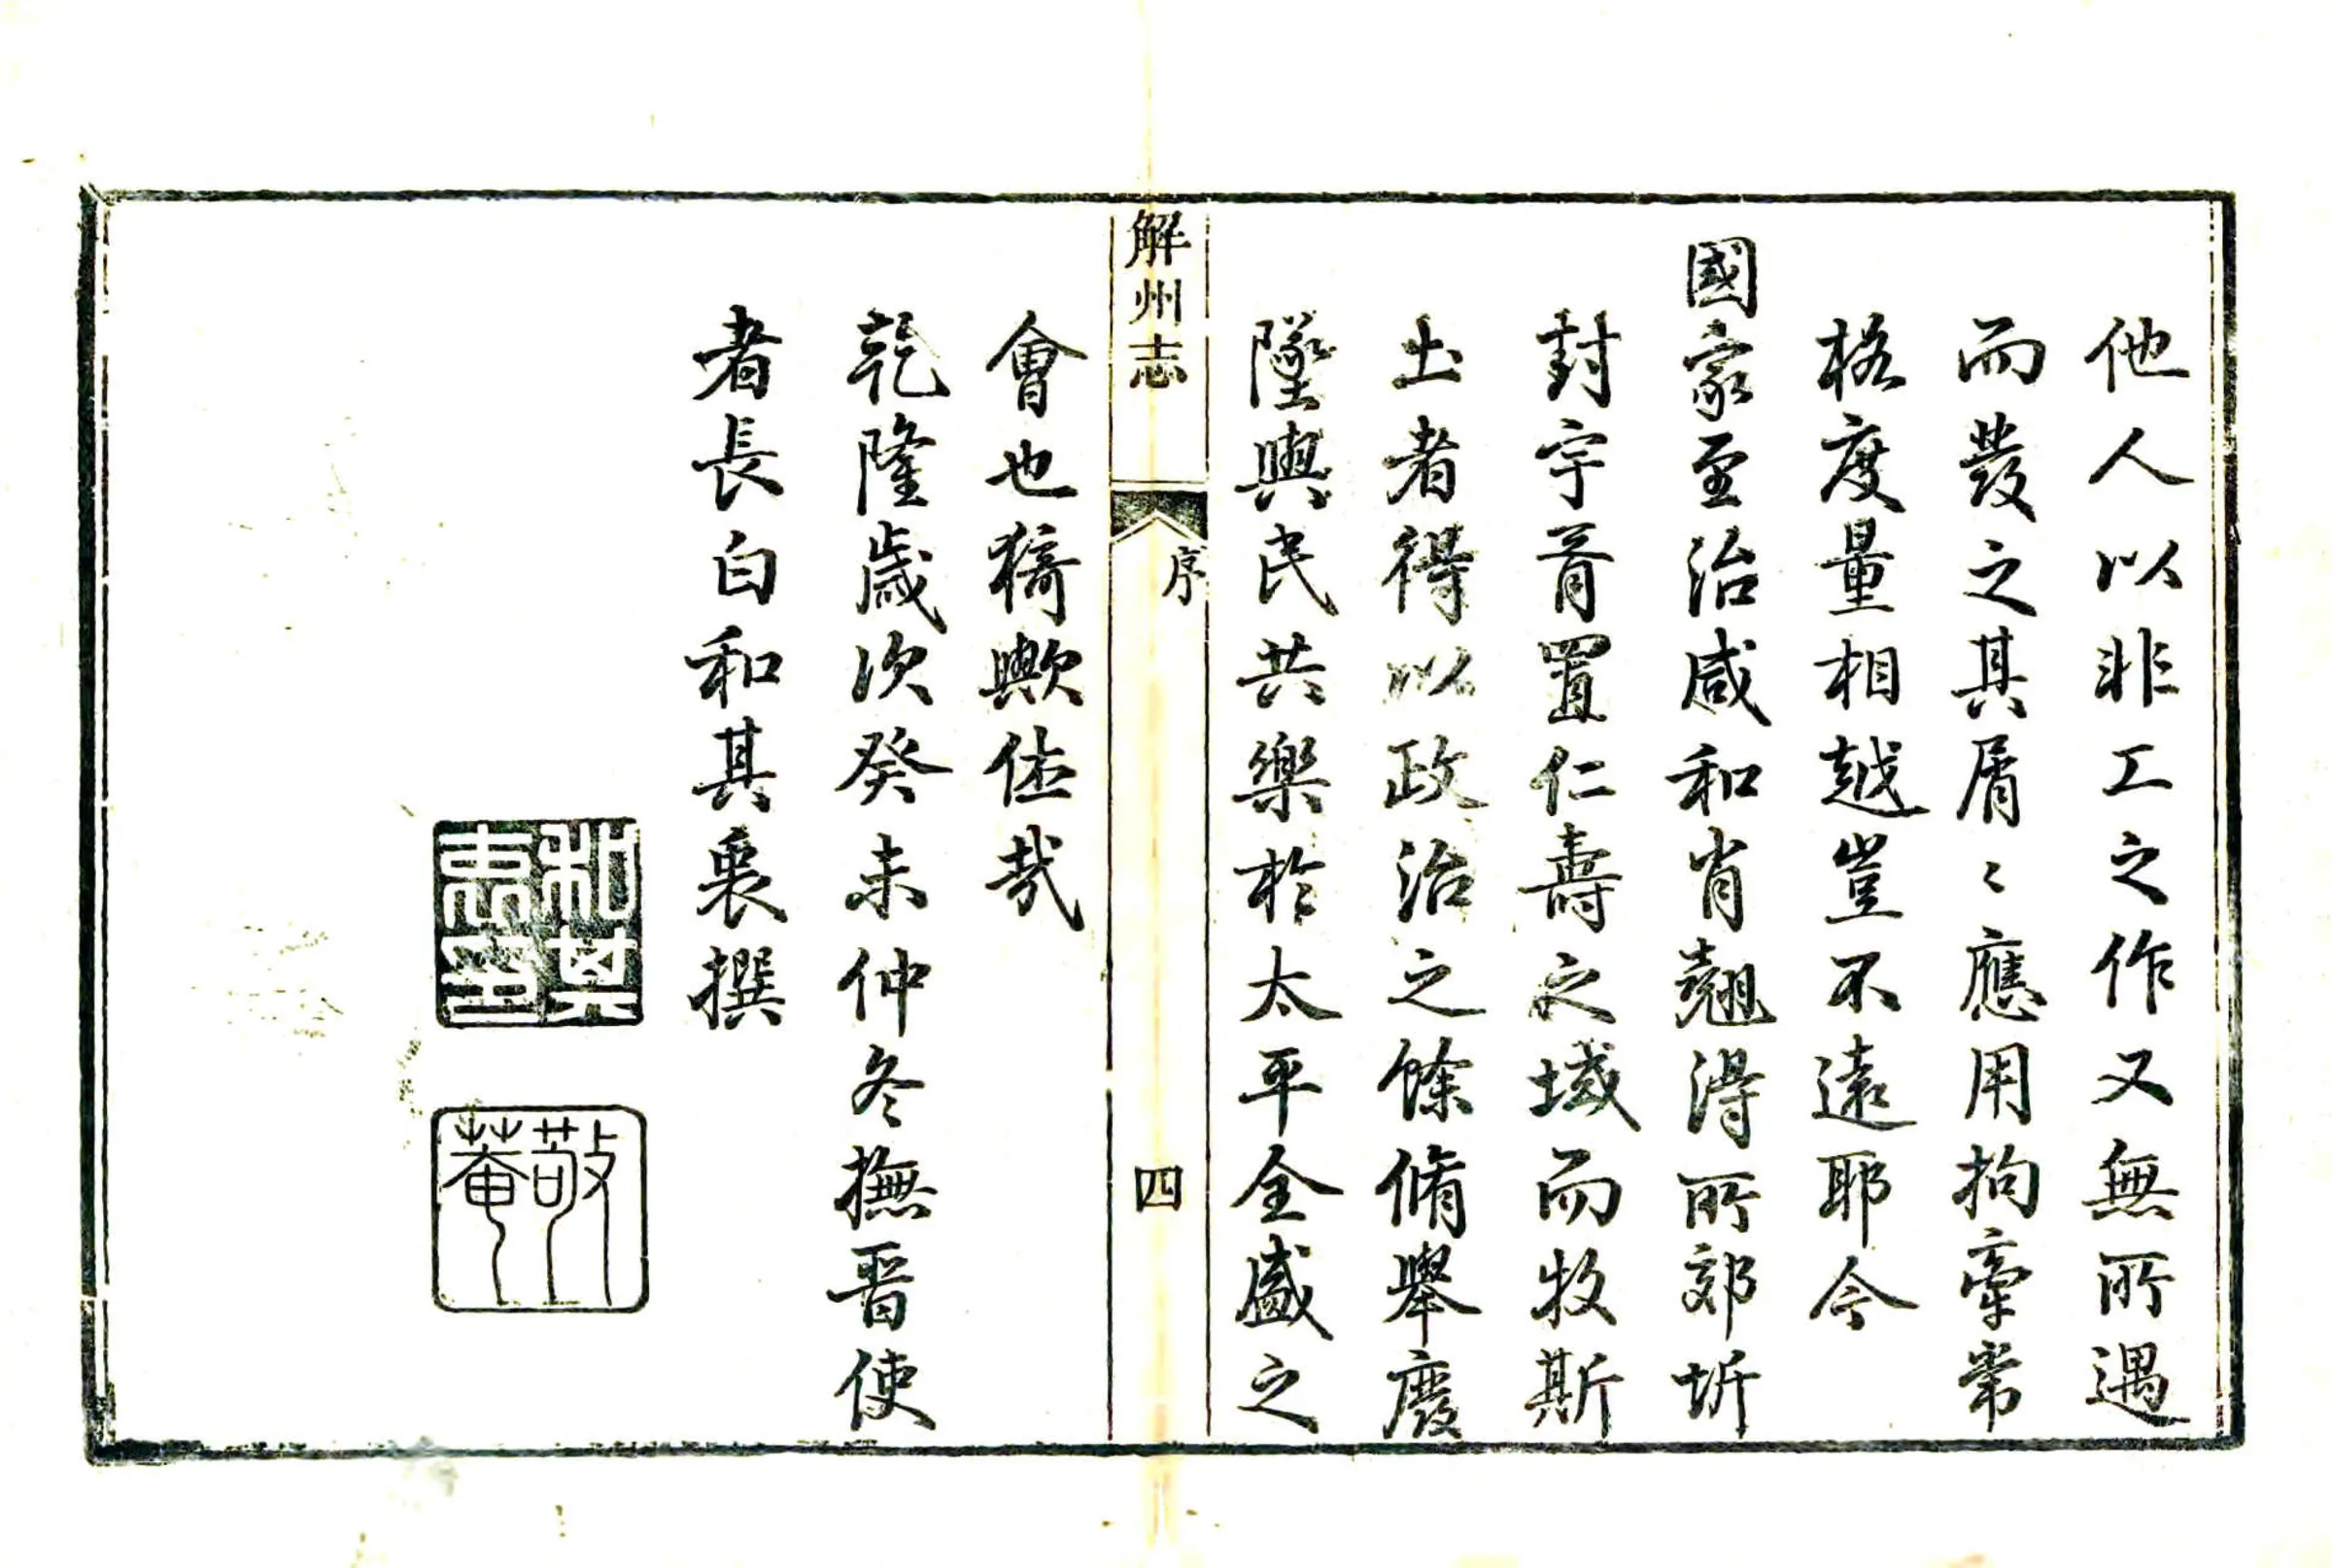 他人以非工之作又無所遇
而發之其屑〻應用拘牽常
格度量相越豈不遠耶今
國家至治咸和肖翹得所郊圻
封宇胥置仁壽之域而牧斯
土者得以政治之餘脩舉廢
墜與民共樂於太平全盛之
解州志
序
四
會也猗歟休哉
乾隆歲次癸未仲冬撫晉使
者長白和其衷撰
和其衷印
敬菴